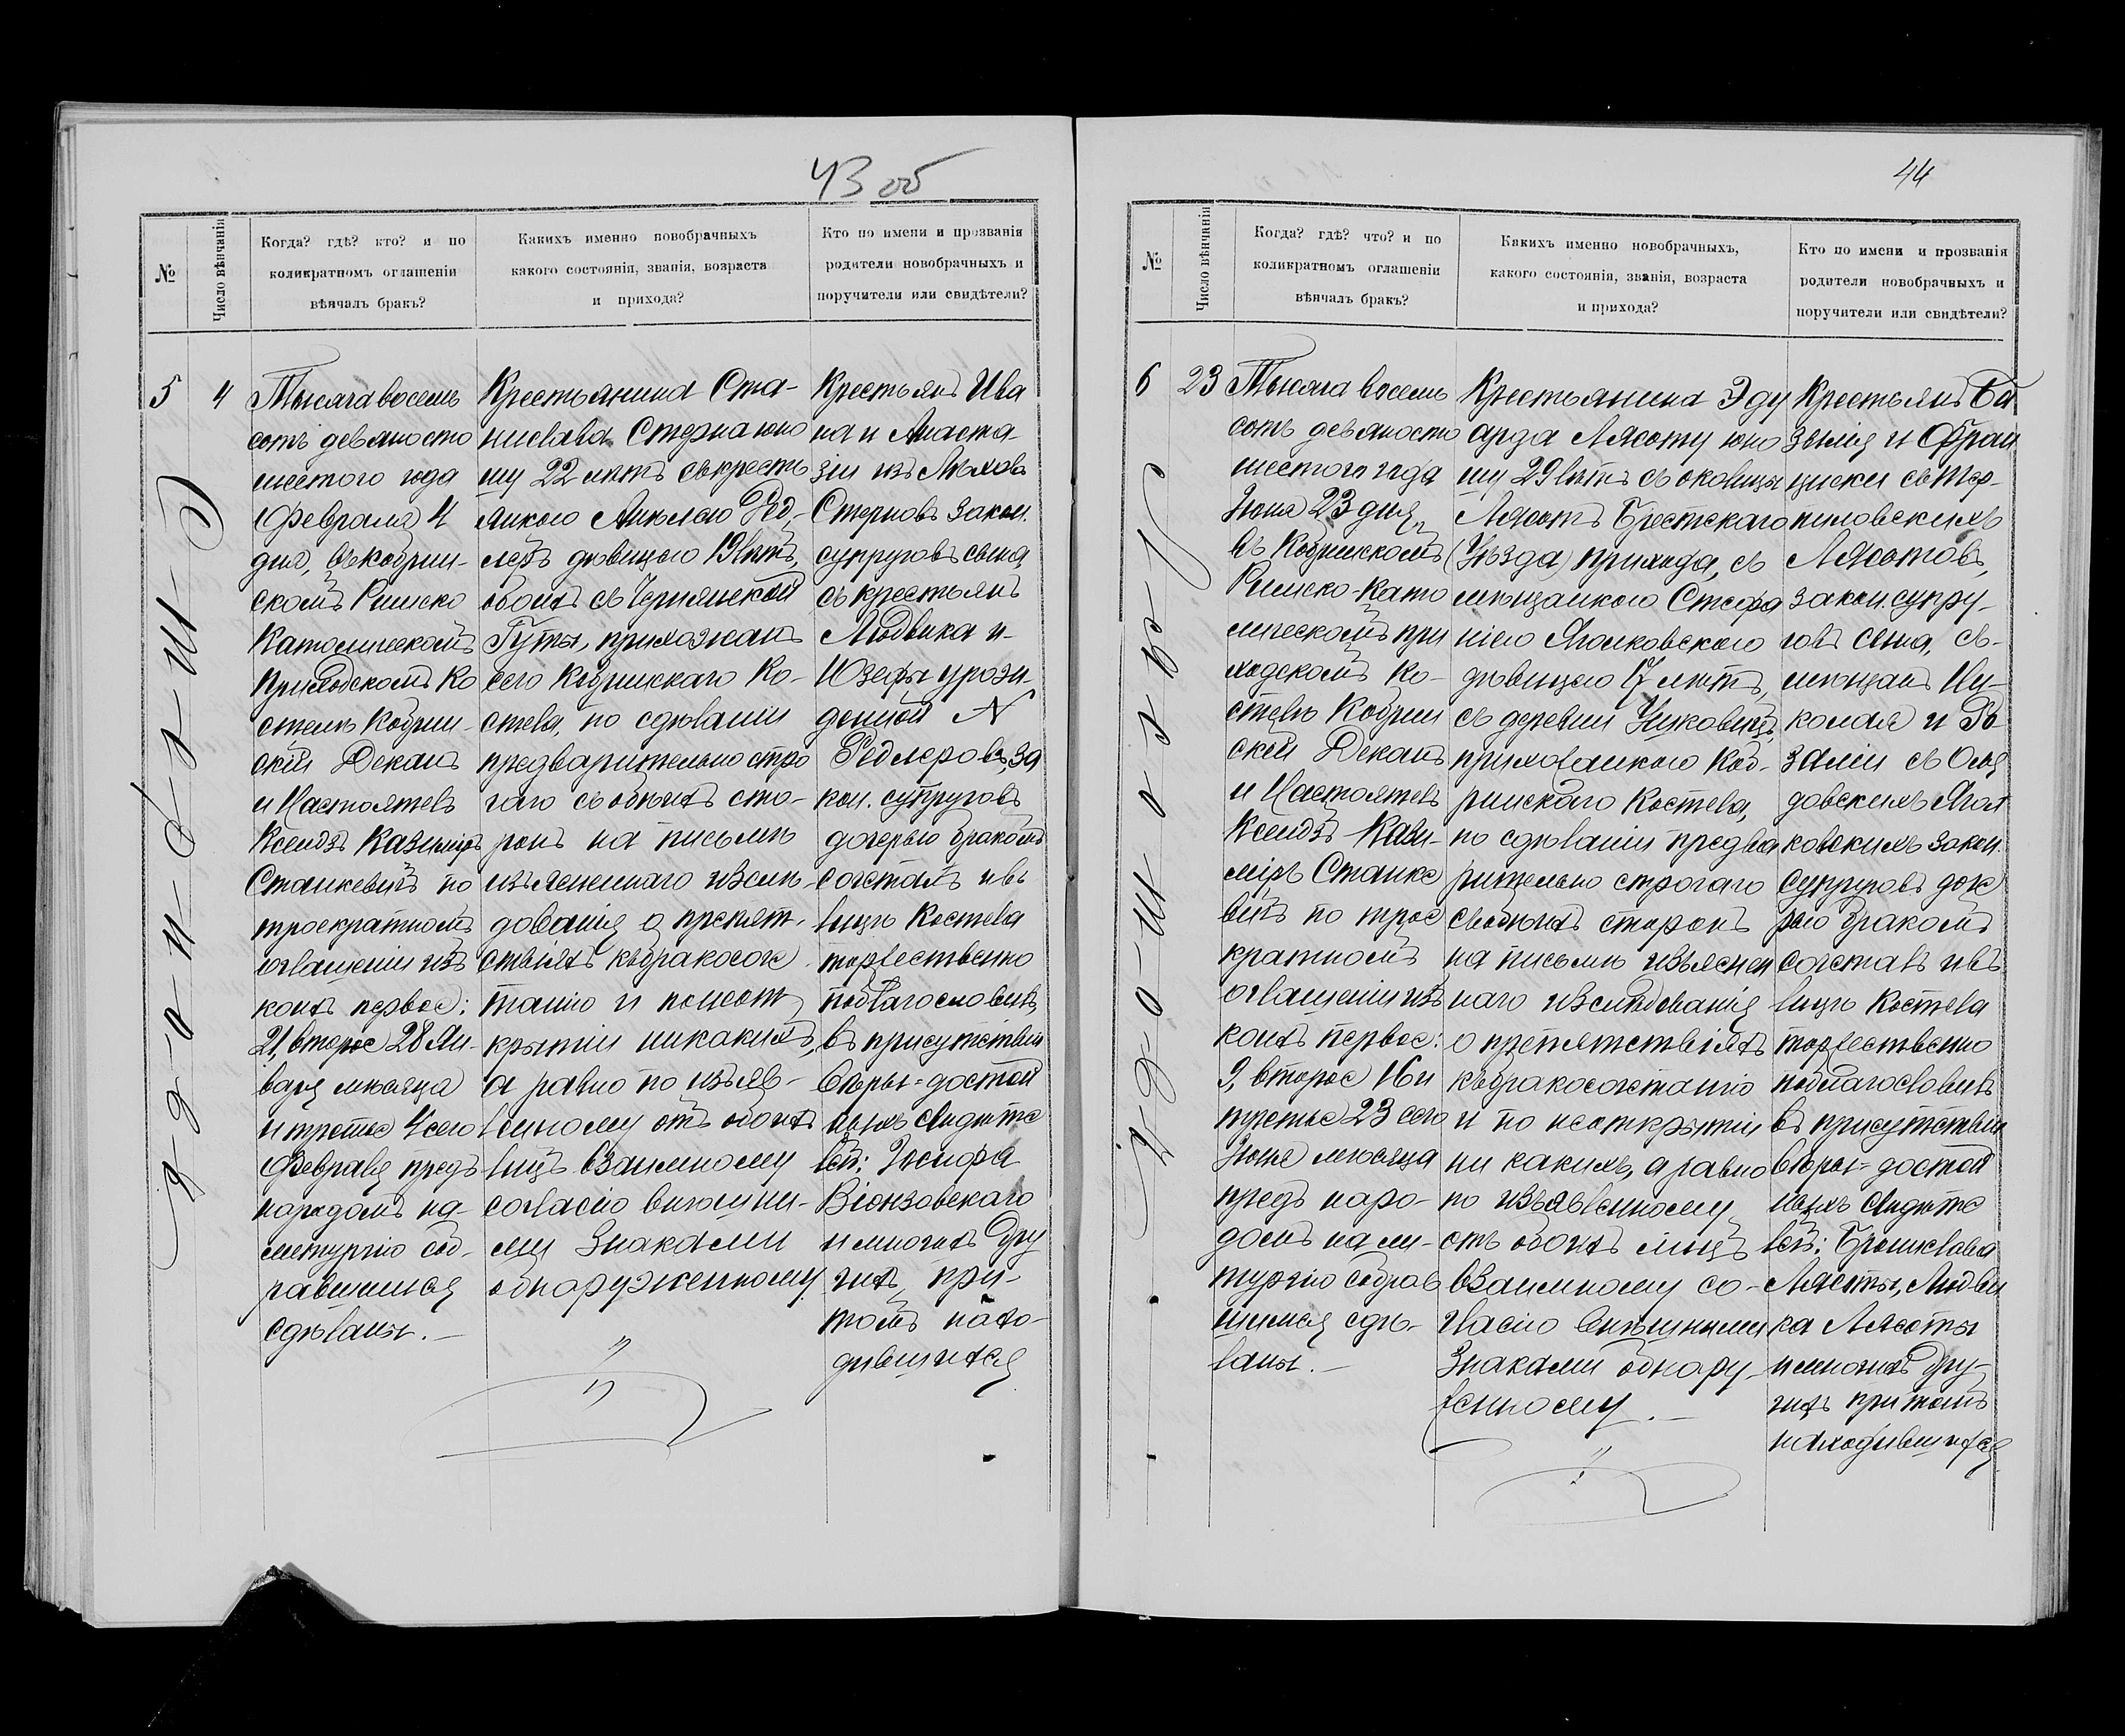 43 об
№
Число вѣнчанія
Когда? гдѣ? кто? и по
коликратномъ оглашеніи
вѣнчалъ бракъ?
Какихъ именно новобрачныхъ
какого состоянія, званія, возраста
и прихода?
Кто по имени и прозванія
родители новобрачныхъ и
поручители или свидѣтели?
5
4
Тысяча восемь
сотъ девяносто
шестого года
Февраля 4
дня, въ Кобрин-
скомъ Римско
Католическомъ
Приходскомъ Ко
стелѣ Кобрин-
скій Деканъ
и Настоятель
Ксендзъ Казиміръ
Станкевичъ по
троекратномъ
оглашеніи изъ
коихъ первое:
21, второе 28 Ян-
варя мѣсяца
и третье 4 сего
Февраля предъ
народомъ на
литургію соб-
равшимся
сдѣланы.—
Крестьянина Ста-
нислава Стерна юно
шу 22 лѣтъ съ кресть
янкою Анелею Ред-
леръ дѣвицею 19 лѣтъ,
обоихъ съ Чернянской
Гуты, прихожанъ
сего Кобринскаго Ко-
стела, по сдѣланіи
предварительно стро
гаго съ обоихъ сто-
ронъ на письмѣ
изъясненнаго изслѣ-
дованія о препят-
ствіяхъ къ бракосоче
танію и по неот
крытіи никакихъ,
а равно по изъяв-
ленному отъ обоихъ
лицъ взаимному
согласію внѣшни-
ми знаками
обнаруженному
Крестьянъ Ива
на и Анаста-
зіи изъ
Стерновъ закон.
супруговъ сына,
съ крестьянъ
Людвика и
Юзефы урож-
денной N
Редлеровъ, за
кон. супруговъ
дочерью бракомъ
сочеталъ и въ
лицѣ Костела
торжественно
поблагословилъ,
въ присутствіи
вѣры-достой
ныхъ свидѣте
лей: Іосифа
Віонзовскаго
и многихъ дру
гихъ, при
томъ нахо-
дившихся
44
№
Число вѣнчанія
Когда? гдѣ? что? и по
коликратномъ оглашеніи
вѣнчалъ бракъ?
Какихъ именно новобрачныхъ,
какого состоянія, званія, возраста
и прихода?
Кто по имени и прозванія
родители новобрачныхъ и
поручители или свидѣтели?
6
23
Тысяча восемь
сотъ девяносто
шестого года
Іюня 23 дня,
въ Кобринскомъ
Римско-Като
лическомъ при
ходскомъ Ко-
стелѣ Кобрин
скій Деканъ
и Настоятель
Ксендзъ Кази-
міръ Станке
вичъ по трое
кратномъ
оглашеніи изъ
коихъ первое:
9, второе 16 и
третье 23 сего
Іюня мѣсяца
предъ наро-
домъ на ли-
тургію собрав
шимся сдѣ-
ланы.—
Крестьянина Эду
арда Лясоту юно
шу 29 лѣтъ съ околицы
Лясотъ Брестскаго
(Уѣзда) прихода, съ
мѣщанкою Стефа
ніею Ягелковского
дѣвицею 17 лѣтъ,
съ деревни
прихожанкою Коб-
ринскаго Костела,
по сдѣланіи предва
рительно строгаго
съ обоихъ сторонъ
на письмѣ изъяснен
наго изслѣдованія
о препятствіяхъ
къ бракосочетанію
и по неоткрытіи
ни какихъ, а равно
по изъявленному
отъ обоихъ лицъ
взаимному со-
гласію внѣшними
знаками обнару-
женному.—
Крестьянъ Ба
зылія и Фран
циски съ
Лясотовъ,
закон. супру-
говъ сына, съ
мѣщанъ Ни-
колая и Ро
заліи съ
закон.
супруговъ доче
рью бракомъ
сочеталъ и въ
лицѣ Костела
торжественно
поблагословилъ
въ присутствіи
вѣры-достой
ныхъ свидѣте
лей: Бронислава
Лясоты, Людви
ка Лясоты
и многихъ дру-
гихъ при томъ
находившихся